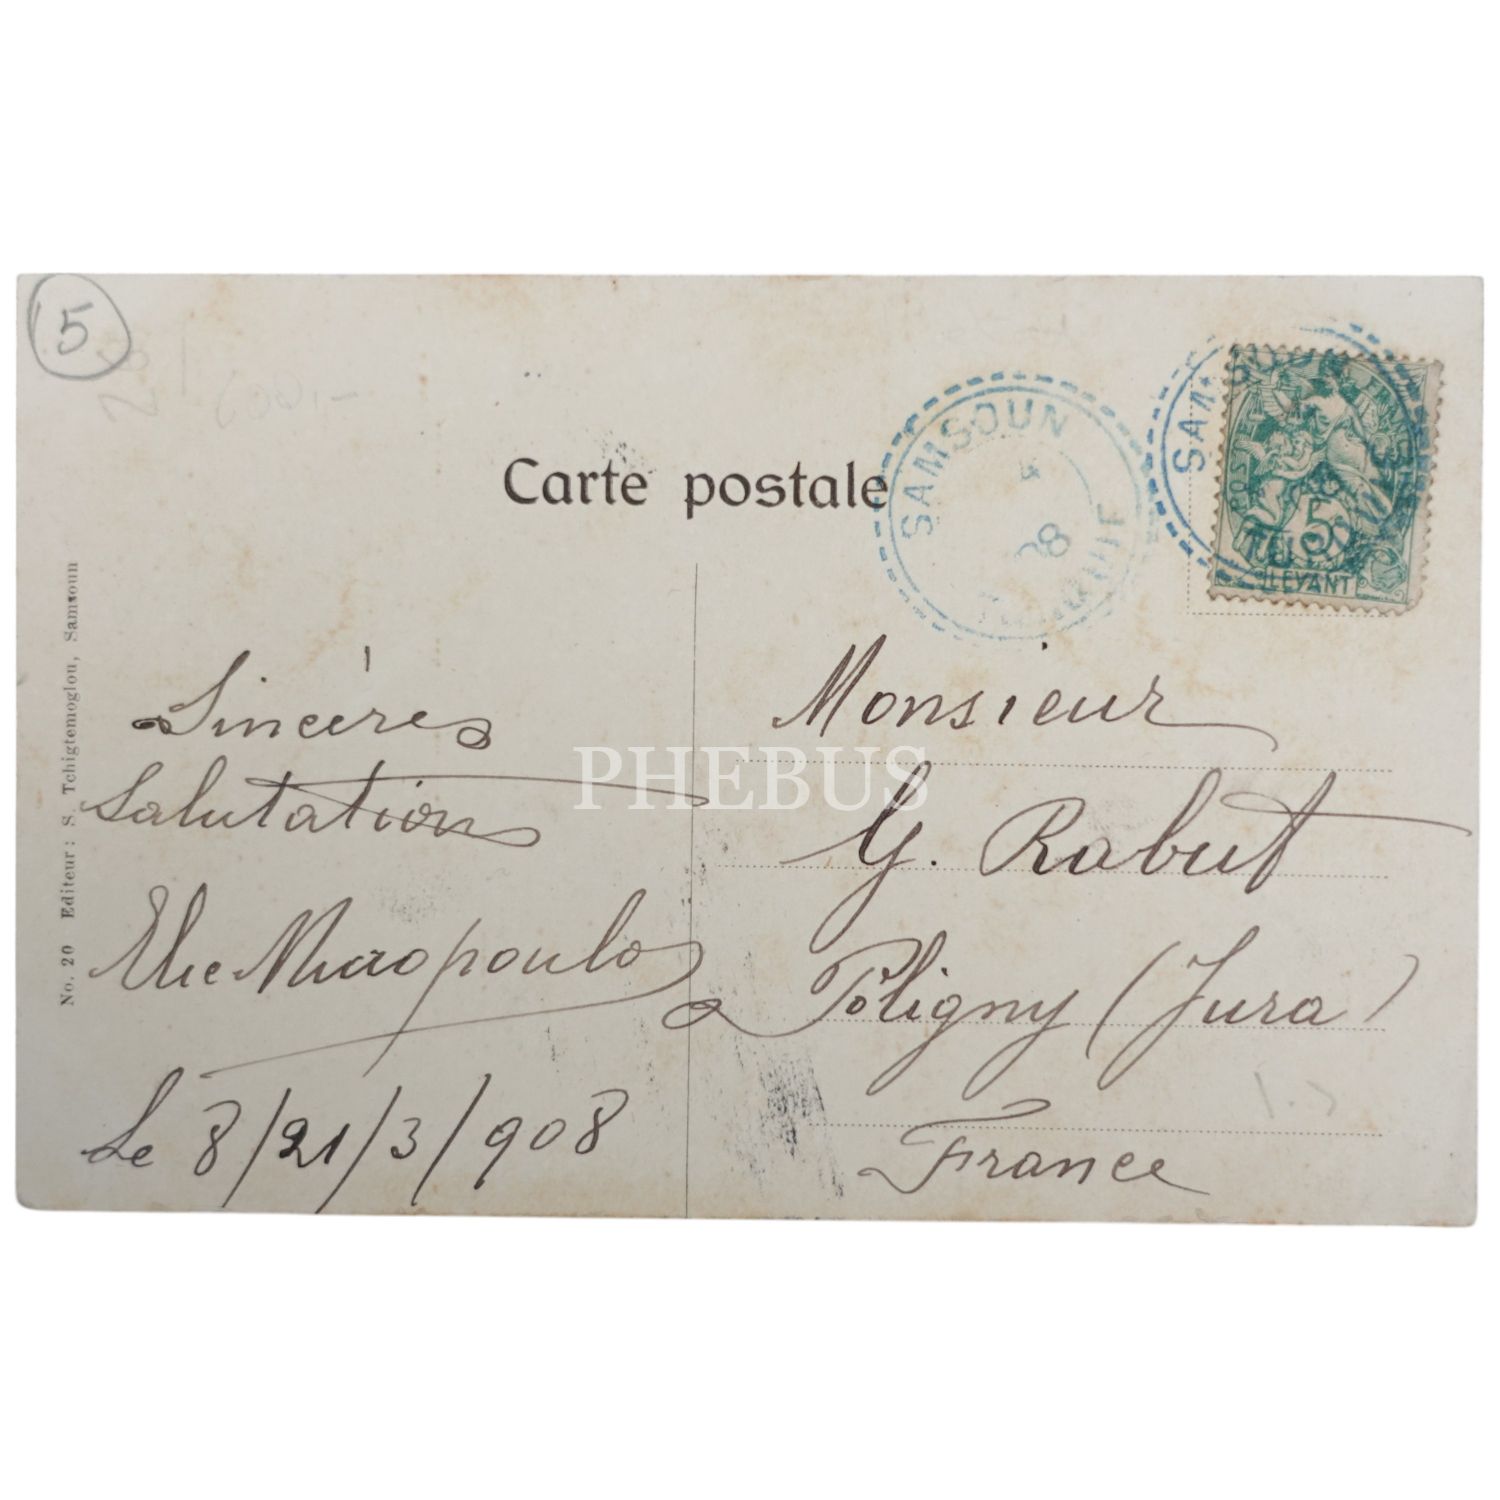 5
600.-
Carte postale
SAMSOUN
08
TURQUIE
SAMSOUN
TURQUIE
5
LEVANT
No. 20 Editeur: S. Tchigtemoglou, Samsoun
Sincères
Salutation
Elie Micropoulo
Le 8/21/3/908
Monsieur
G. Rabut
Poligny (Jura)
France
PHEBUS